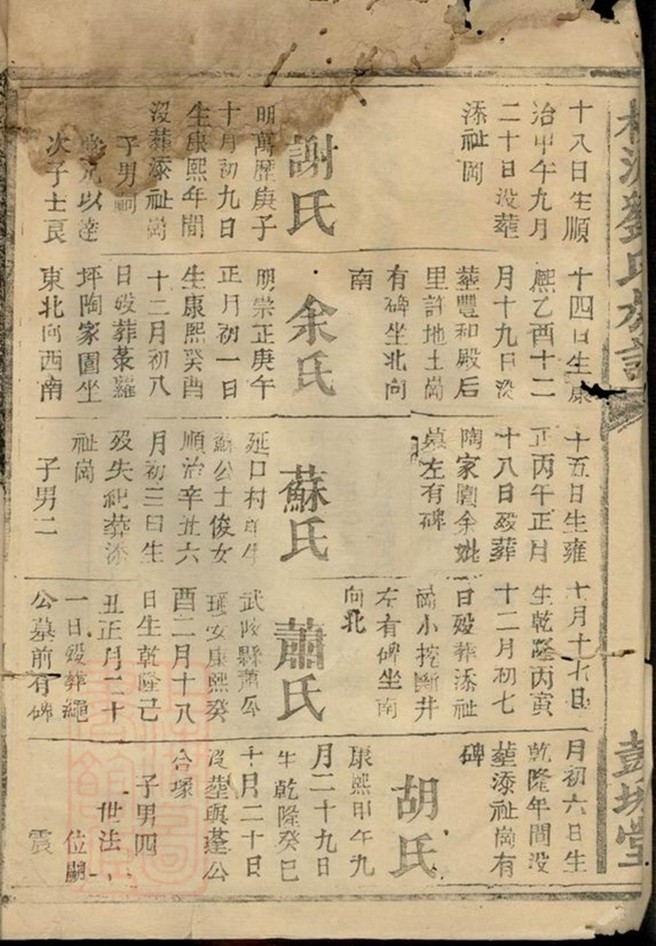 劉氏族譜
彭城堂
十八日生順
治甲午九月
二十日没葬
添祉崗
謝氏
明萬歷庚子
十月初九日
生康熙年間
没葬添祉崗
子男嗣
以達
次子士良
十四日生康
熙乙酉十二
月十九日没
葬豐和殿后
里許地土崗
有碑坐北向
南
余氏
明崇正庚午
正月初一日
生康熙癸酉
十二月初八
日殁葬菉蘿
坪陶家園坐
東北向西南
十五日生雍
正丙午正月
十八日殁葬
陶家園余妣
墓左有碑
蘇氏
延口村庠生
蘇公士俊女
順治辛丑六
月初三日生
殁失紀葬添
祉崗
子男二
七月十七日
生乾隆丙寅
十二月初七
日殁葬添祉
崗小挖斷井
左有碑坐南
向北
蕭氏
武陵縣蕭公
女康熙癸
酉二月十八
日生乾隆己
丑正月二十
一日殁葬繩
公墓前有碑
月初六日生
乾隆年間没
葬添祉崗有
碑
胡氏
康熙甲午九
月二十九日
生乾隆癸巳
十月二十日
没葬與蓬公
合塚
子男四
世法
位嗣
震